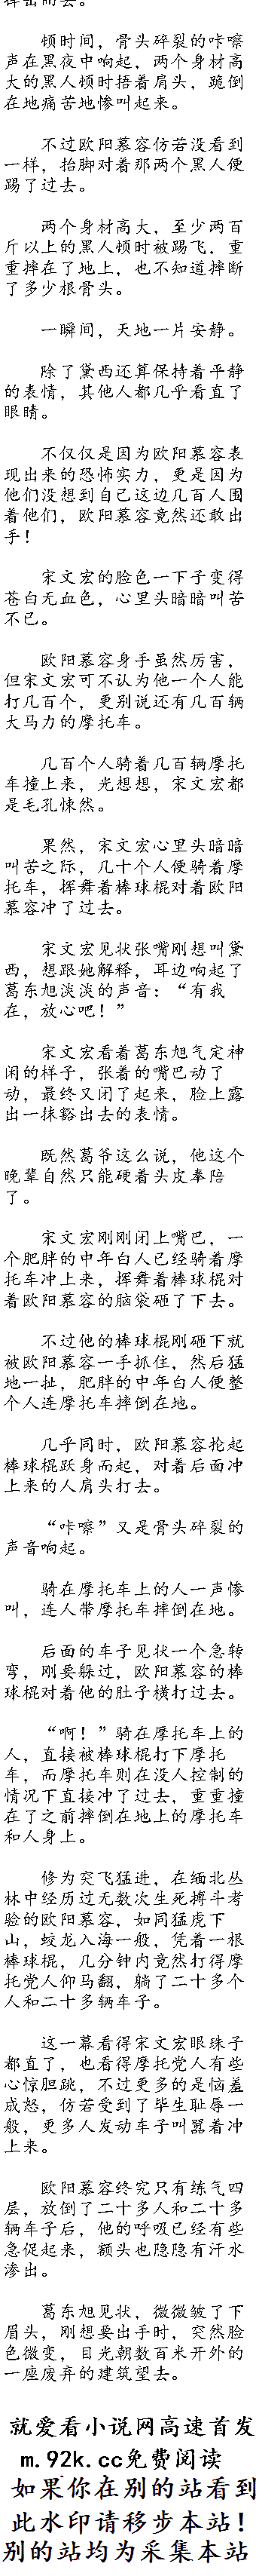 顿时间，骨头碎裂的咔嚓
声在黑夜中响起，两个身材高
大的黑人顿时捂着肩头，跪倒
在地痛苦地惨叫起来。
不过欧阳慕容仿若没看到
一样，抬脚对着那两个黑人便
踢了过去。
两个身材高大，至少两百
斤以上的黑人顿时被踢飞，重
重摔在了地上，也不知道摔断
了多少根骨头。
一瞬间，天地一片安静。
除了黛西还算保持着平静
的表情，其他人都几乎看直了
眼睛。
不仅仅是因为欧阳慕容表
现出来的恐怖实力，更是因为
他们没想到自己这边几百人围
着他们，欧阳慕容竟然还敢出
手！
宋文宏的脸色一下子变得
苍白无血色，心里头暗暗叫苦
不已。
欧阳慕容身手虽然厉害，
但宋文宏可不认为他一个人能
打几百个，更别说还有几百辆
大马力的摩托车。
几百个人骑着几百辆摩托
车撞上来，光想想，宋文宏都
是毛孔悚然。
果然，宋文宏心里头暗暗
叫苦之际，几十个人便骑着摩
托车，挥舞着棒球棍对着欧阳
慕容冲了过去。
宋文宏见状张嘴刚想叫黛
西，想跟她解释，耳边响起了
葛东旭淡淡的声音：“有我
在，放心吧！”
宋文宏看着葛东旭气定神
闲的样子，张着的嘴巴动了
动，最终又闭了起来，脸上露
出一抹豁出去的表情。
既然葛爷这么说，他这个
晚辈自然只能硬着头皮奉陪
了。
宋文宏刚刚闭上嘴巴，一
个肥胖的中年白人已经骑着摩
托车冲上来，挥舞着棒球棍对
着欧阳慕容的脑袋砸了下去。
不过他的棒球棍刚砸下就
被欧阳慕容一手抓住，然后猛
地一扯，肥胖的中年白人便整
个人连摩托车摔倒在地。
几乎同时，欧阳慕容抡起
棒球棍跃身而起，对着后面冲
上来的人肩头打去。
“咔嚓”又是骨头碎裂的
声音响起。
骑在摩托车上的人一声惨
叫，连人带摩托车摔倒在地。
后面的车子见状一个急转
弯，刚要躲过，欧阳慕容的棒
球棍对着他的肚子横打过去。
“啊！”骑在摩托车上的
人，直接被棒球棍打下摩托
车，而摩托车则在没人控制的
情况下直接冲了过去，重重撞
在了之前摔倒在地上的摩托车
和人身上。
修为突飞猛进，在缅北丛
林中经历过无数次生死搏斗考
验的欧阳慕容，如同猛虎下
山，蛟龙入海一般，凭着一根
棒球棍，几分钟内竟然打得摩
托党人仰马翻，躺了二十多个
人和二十多辆车子。
这一幕看得宋文宏眼珠子
都直了，也看得摩托党人有些
心惊胆跳，不过更多的是恼羞
成怒，仿若受到了毕生耻辱一
般，更多人发动车子叫嚣着冲
上来。
欧阳慕容终究只有练气四
层，放倒了二十多人和二十多
辆车子后，他的呼吸已经有些
急促起来，额头也隐隐有汗水
渗出。
葛东旭见状，微微皱了下
眉头，刚想要出手时，突然脸
色微变，目光朝数百米开外的
一座废弃的建筑望去。
就爱看小说网高速首发
m.92k.cc免费阅读
如果你在别的站看到
此水印请移步本站！
别的站均为采集本站